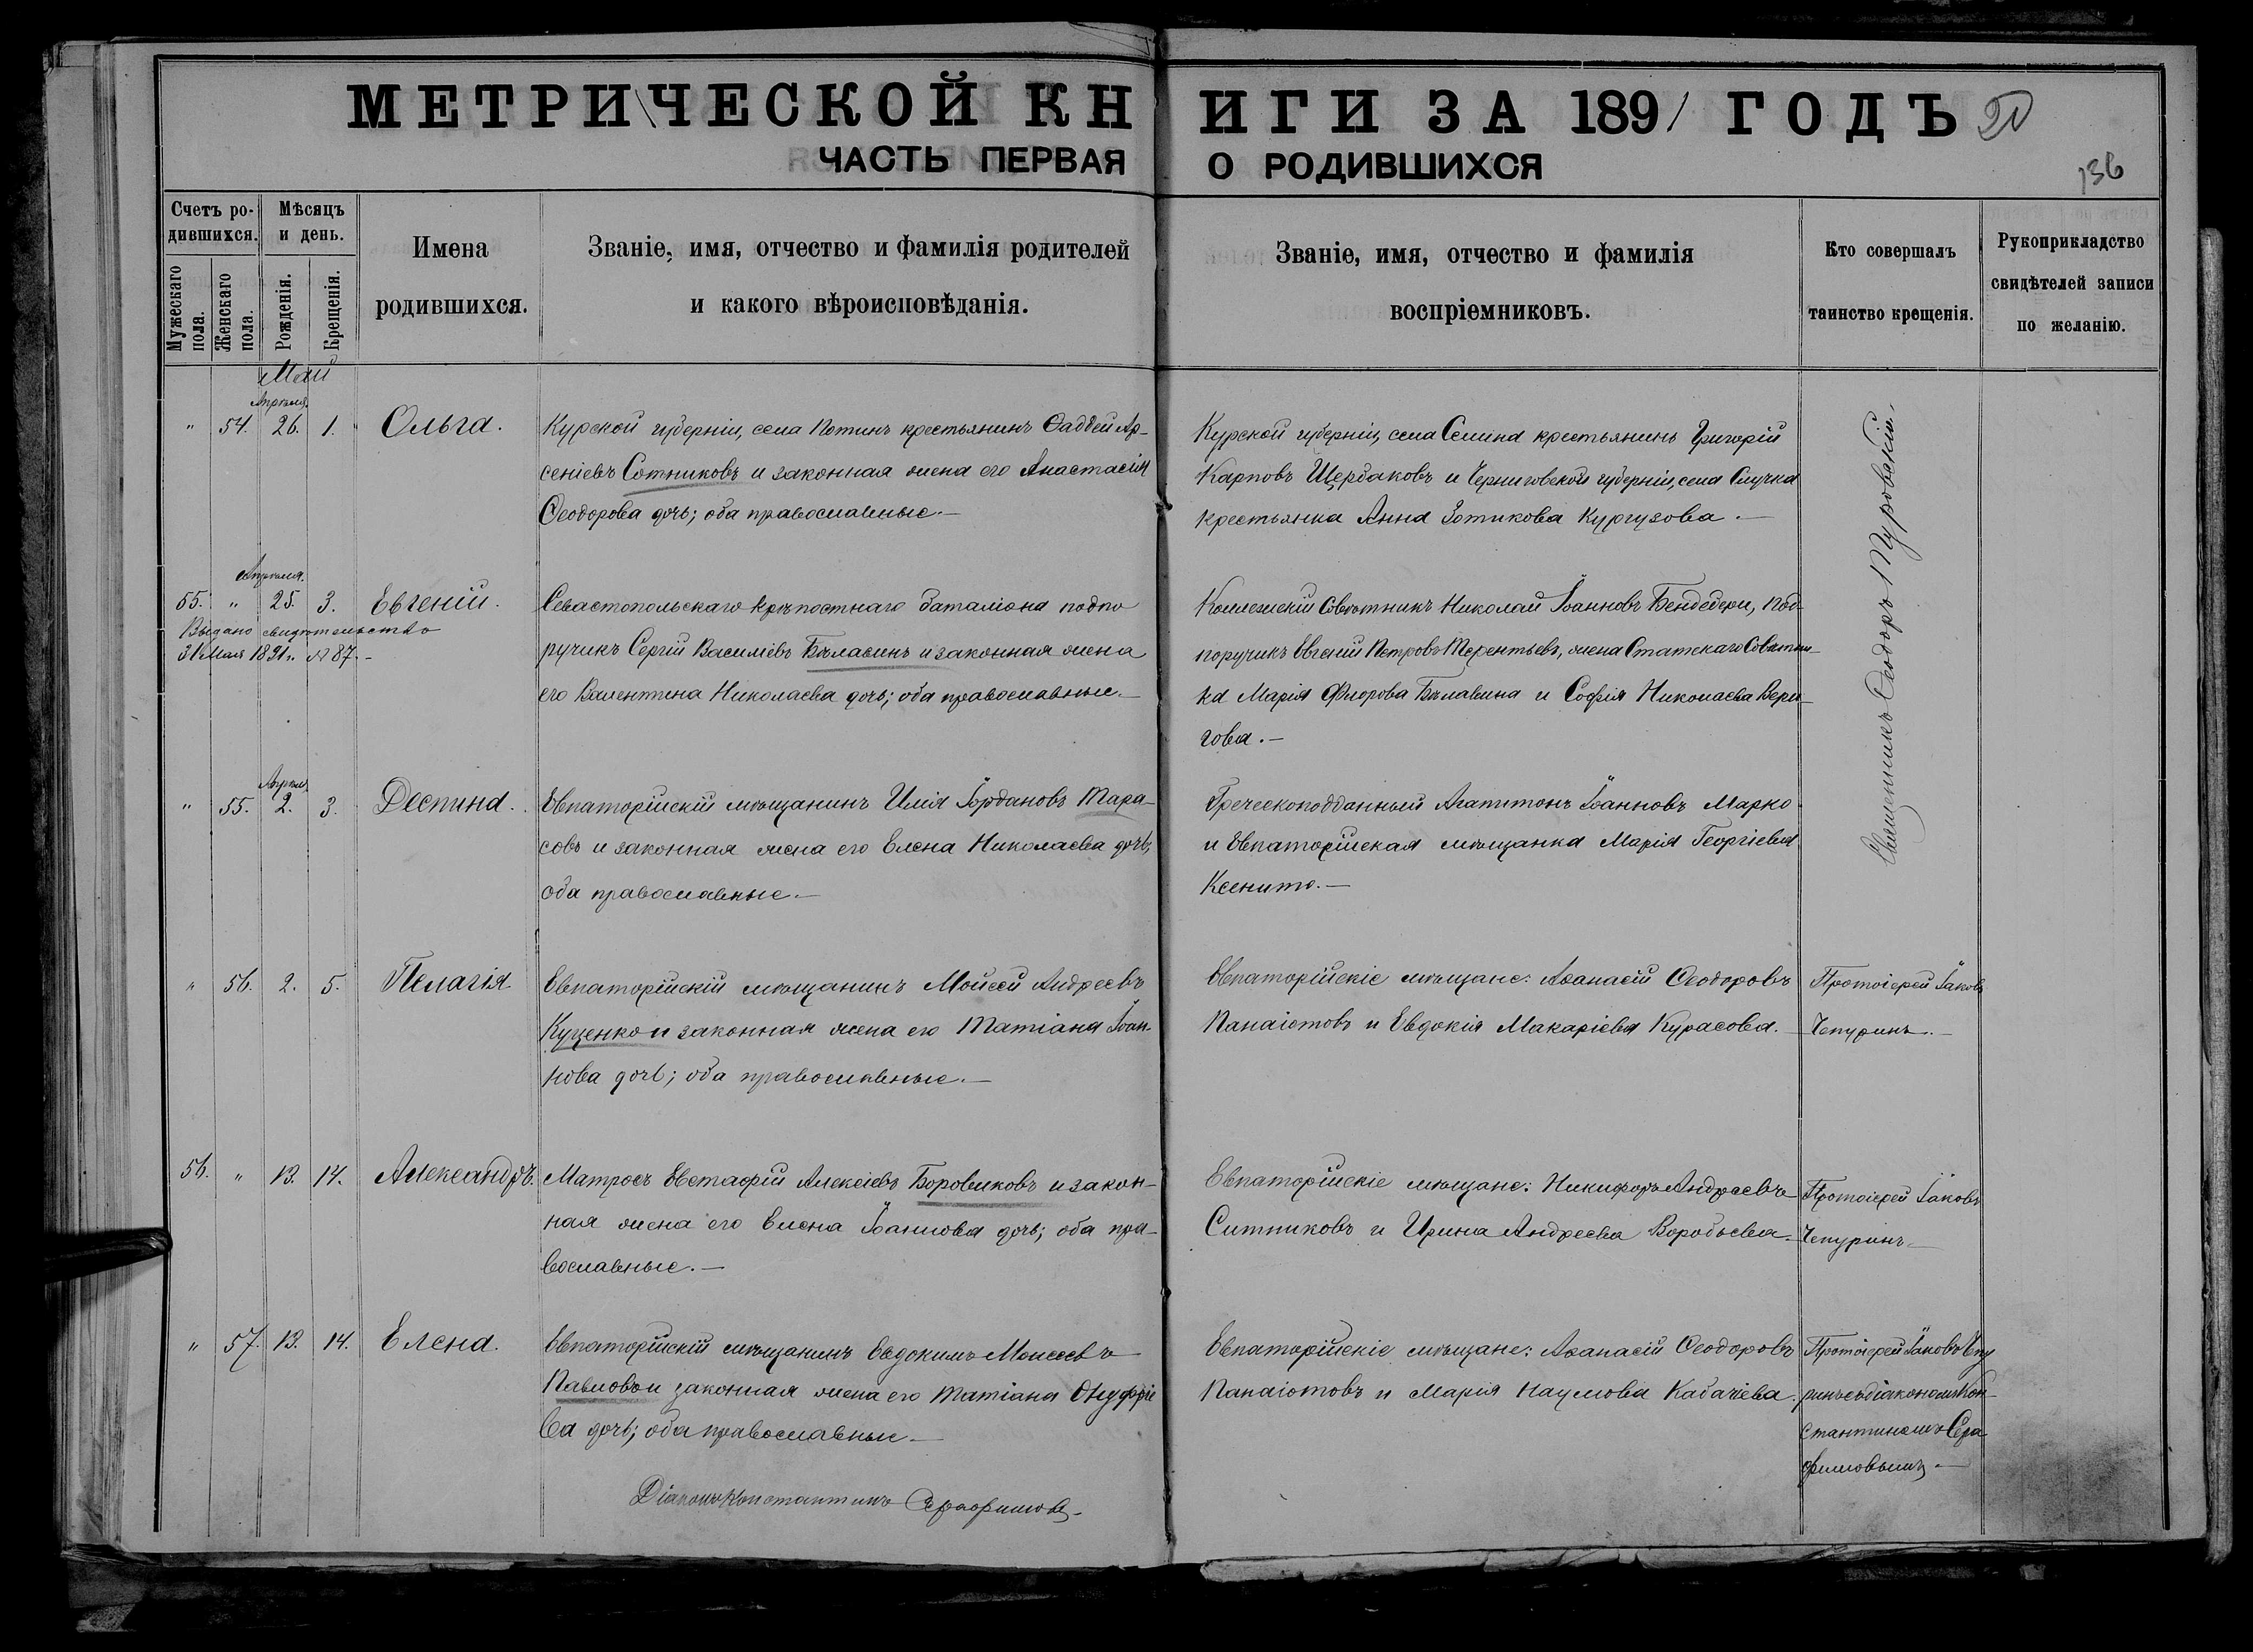 МЕТРИЧЕСКОЙ КНИГИ ЗА 1891 ГОДЪ
136
ЧАСТЬ ПЕРВАЯ О РОДИВШИХСЯ
Счетъ ро-
дившихся.
Мужескаго
пола.
Женскаго
пола.
Мѣсяцъ
и день.
Рожденія.
Крещенія.
Имена
родившихся.
Званіе, имя, отчество и фамилія родителей
и какого вѣроисповѣданія.
Званіе, имя, отчество и фамилія
воспріемниковъ.
Кто совершалъ
таинство крещенія.
Рукоприкладство
свидѣтелей записи
по желанію.
Май
Апрѣля.
" 54. 26. 1. Ольга.
Курской губерніи, села Потинъ крестьянинъ Ѳаддей Ар-
сеніевъ Сотниковъ и законная жена его Анастасія
Ѳеодорова дочь; оба православные.—
Курской губерніи, села Семина крестьянинъ Григорій
Карповъ Щербаковъ и Черниговской губерніи, села Случка
крестьянка Анна Зотикова Кургузова.—
Священникъ Ѳеодоръ Туровскій.
Апрѣля.
55. " 25. 3. Евгеній.
Выдано свидѣтельство
31 Мая 1891г. №87.-
Севастопольскаго крѣпостнаго баталіона подпо
ручикъ Сергій Василіевъ Бѣлавинъ и законная жена
его Валентина Николаева дочь; оба православные.—
Коллежскій Совѣтникъ Николай Іоанновъ Бендебери, Под-
поручикъ Евгеній Петровъ Терентьевъ, жена Статскаго Совѣтни-
ка Марія Флорова Бѣлавина и Софія Николаева Вери-
гова.—
Апрѣля
" 55. 2. 3. Деспина.
Евпаторійскій мѣщанинъ Илія Іордановъ Тара-
совъ и законная жена его Елена Николаева дочь;
оба православные.—
Греческоподданный Агапитонъ Іоанновъ Марко
и Евпаторійская мѣщанка Марія Георгіева
Ксенито.—
" 56. 2. 5. Пелагія
Евпаторійскій мѣщанинъ Мойсей Андреевъ
Куценко и законная жена его Татіана Іоан-
нова дочь; оба православные.—
Евпаторійскіе мѣщане: Аѳанасій Ѳеодоровъ
Панаіотовъ и Евдокія Макаріева Курасова.
Протоіерей Іаковъ
Чепуринъ.—
56. " 13. 14. Александръ.
Матросъ Евстафій Алексіевъ Боровиковъ и закон-
ная жена его Елена Іоаннова дочь; оба пра-
вославные.—
Евпаторійскіе мѣщане: Никифоръ Андреевъ
Ситниковъ и Ирина Андреева Воробьева.
Протоіерей Іаковъ
Чепуринъ—
" 57. 13. 14. Елена.
Евпаторійскій мѣщанинъ Евдокимъ Моисеевъ
Павловъ и законная жена его Татіана Онуфріе
ва дочь; оба православные—
Евпаторійскіе мѣщане: Аѳанасій Ѳеодоровъ
Панаіотовъ и Марія Наумова Кабачіева.
Протоіерей Іаковъ Чепу
ринъ съ діакономъ Кон-
стантиномъ Сера
фимовымъ—
Діаконъ Константинъ Серафимовъ-